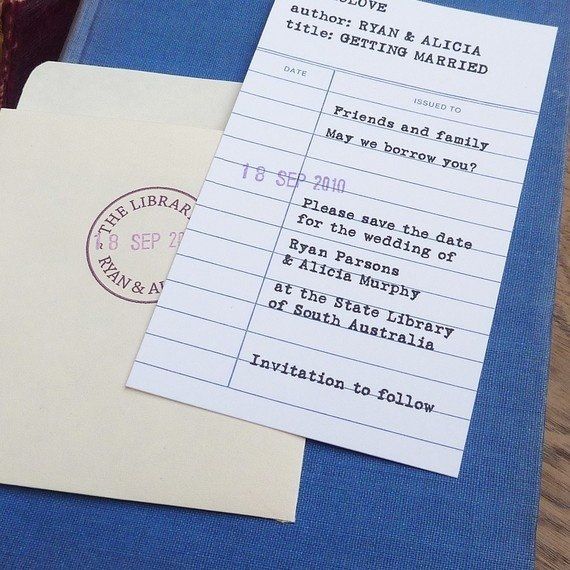 author: RYAN & ALICIA
title: GETTING MARRIED
DATE
ISSUED TO
Friends and family
May we borrow you?
18 SEP 2010
Please save the date
for the wedding of
Ryan Parsons
& Alicia Murphy
at the State Library
of South Australia
Invitation to follow
THE
18 SEP
RYAN &